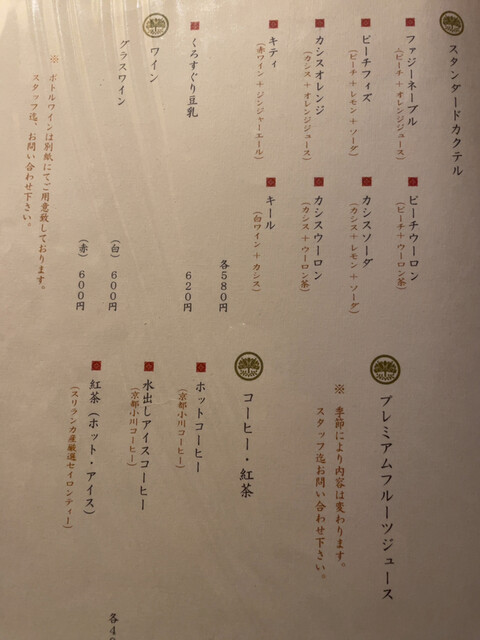 スタンダードカクテル
ファジーネーブル
(ピーチ+オレンジジュース)
ピーチウーロン
(ピーチ+ウーロン茶)
ピーチフィズ
(ピーチ+レモン+ソーダ)
カシスソーダ
(カシス+レモン+ソーダ)
カシスオレンジ
(カシス+オレンジジュース)
カシスウーロン
(カシス+ウーロン茶)
キティ
(赤ワイン+ジンジャーエール)
キール
(白ワイン+カシス)
各580円
くろすぐり豆乳
620円
ワイン
グラスワイン
(白) 600円
(赤) 600円
※ ボトルワインは別紙にてご用意致しております。
スタッフ迄、お問い合わせ下さい。
プレミアムフルーツジュース
※ 季節により内容は変わります。
スタッフ迄お問い合わせ下さい。
コーヒー・紅茶
ホットコーヒー
(京都小川コーヒー)
水出しアイスコーヒー
(京都小川コーヒー)
紅茶(ホット・アイス)
(スリランカ産厳選セイロンティー)